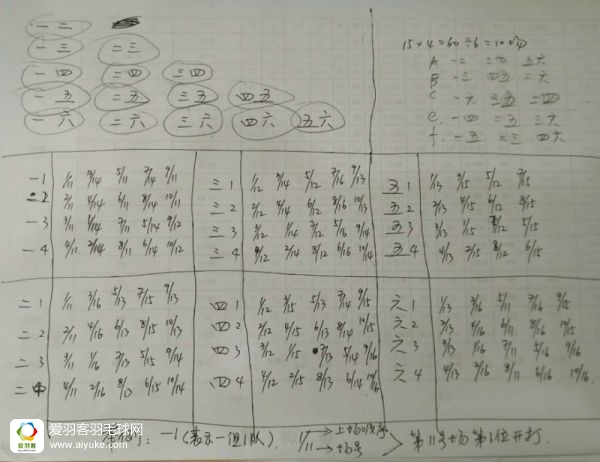 一二
一三 二三
一四 二四 三四
一五 二五 三五 四五
一六 二六 三六 四六 五六
15×4=60÷6=10场
A 一二 三四 五六
B 一三 四五 二六
C 一六 三五 二四
e. 一四 二五 三六
f. 一五 二三 四六
一1 1/11 3/14 5/11 7/14 9/11
一2 2/11 4/14 6/11 8/14 10/11
一3 3/11 1/14 7/11 5/14 9/12
一4 4/11 2/14 8/11 6/14 10/12
三1 1/12 3/14 5/12 7/16 9/13
三2 2/12 4/14 6/12 8/16 10/13
三3 3/12 1/14 7/12 5/16 9/14
三4 2/14 8/12 6/16 10/14
五1 1/13 3/15 5/12 7/15
五2 2/13 4/15 6/12 8/15
五3 3/13 1/15 5/15
五4 4/13 2/15 8/12 6/15
二1 1/11 3/16 5/13 7/15 9/13
二2 2/11 4/16 6/13 8/15 10/13
二3 3/11 1/16 7/13 5/15 9/14
二4 4/11 2/16 8/13 6/15 10/14
四1 1/12 3/15 5/13 7/14 9/15
四2 2/12 4/15 6/13 8/14 10/15
四3 3/12 1/15 7/13 5/14 9/16
四4 4/12 2/15 8/13 6/14 10/16
六1 1/13 3/16 5/11 7/16 9/15
六2 2/13 4/16 6/11 8/16 10/15
六3 3/13 1/16 7/11 5/16 9/16
六4 4/13 2/16 8/11 6/16 10/16
一1(表示一组1队) 1/11 → 上场顺序 → 场号 > 第11号场第1位开打.
爱羽客羽毛球网
www.aiyuke.com